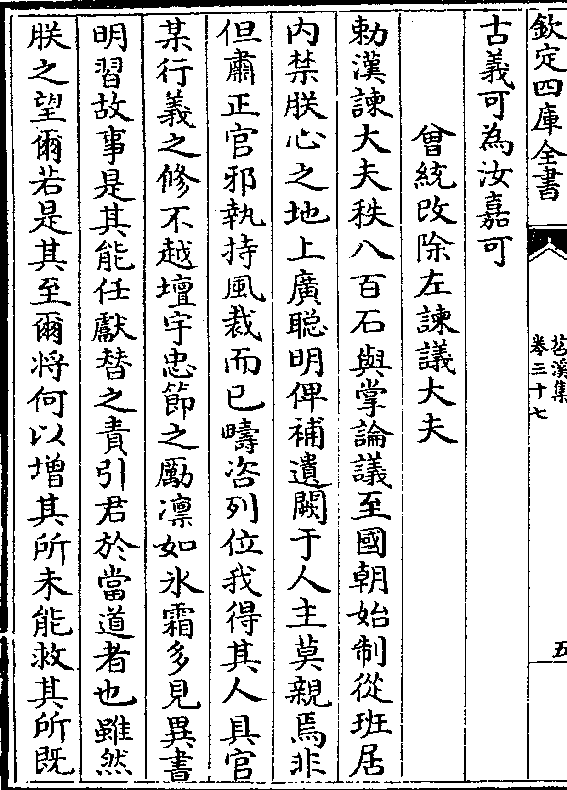 欽定四庫全書
苕溪集
卷三十七
五
古義可為汝嘉可
曾統改除左諫議大夫
勅漢諫大夫秩八百石與掌論議至國朝始制從班居
内禁朕心之地上廣聪明俾補遺闕于人主莫親焉非
但肅正官邪執持風裁而已疇咨列位我得其人具官
某行義之修不越壇宇忠節之勵凛如氷霜多見異書
明習故事是其能任獻替之責引君於當道者也雖然
朕之望爾若是其至爾将何以增其所未能救其所既